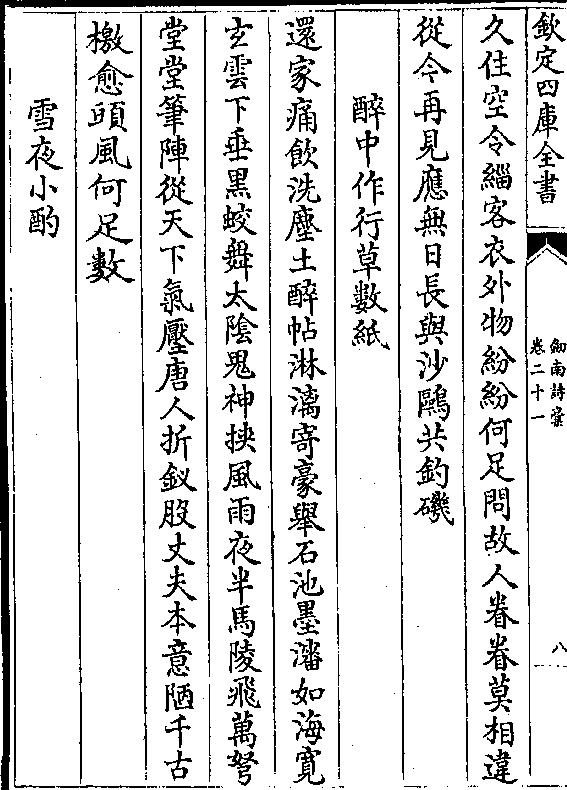 欽定四庫全書
劒南詩藁
卷二十一
八
久住空令緇客衣外物紛紛何足問故人眷眷莫相違
從今再見應無日長與沙鷗共釣磯
醉中作行草數紙
還家痛飲洗塵土醉帖淋漓寄豪舉石池墨瀋如海寛
玄雲下垂黒蛟舞太陰鬼神挾風雨夜半馬陵飛萬弩
堂堂筆陣從天下氣壓唐人折釵股丈夫本意陋千古
檄愈頭風何足數
雪夜小酌